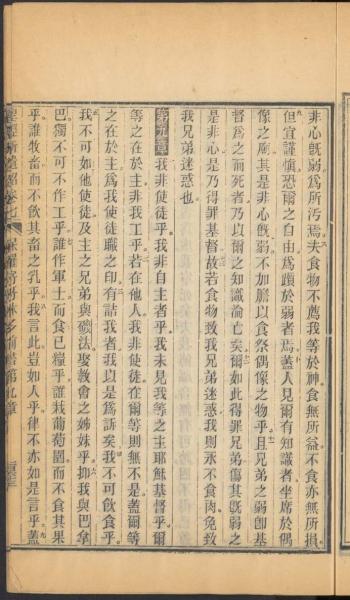 非心旣弱爲所汚焉夫食物不薦我等於神食無所益不食亦無所損
但宜謹愼恐爾之自由爲躓於弱者焉蓋人見爾有知識者坐席於偶
像之廟其是非心旣弱不加膽以食祭偶像之物乎且兄弟之弱卽基
督爲之而死者乃以爾之知識淪亡矣爾如此得罪兄弟傷其旣弱之
是非心是乃得罪基督故若食物致我兄弟迷惑我則永不食肉免致
我兄弟迷惑也
第九章我非使徒乎我非自主者乎我未見我等之主耶穌基督乎爾
等之在於主非我工乎若在他人我非使徒在爾等則無不是蓋爾等
之在於主爲我使徒職之印有詰我者我以是爲訴矣我不可飲食乎
我不可如他使徒及主之兄弟與磯法娶敎會之姊妹乎抑我與巴拿
巴獨不可不作工乎誰作軍士而食已糧乎誰栽葡萄園而不食其果
乎誰牧畜而不飲其畜之乳乎我言此豈如人乎律不亦如是言乎蓋
聖經新遺詔卷七 哥林多前書第九章